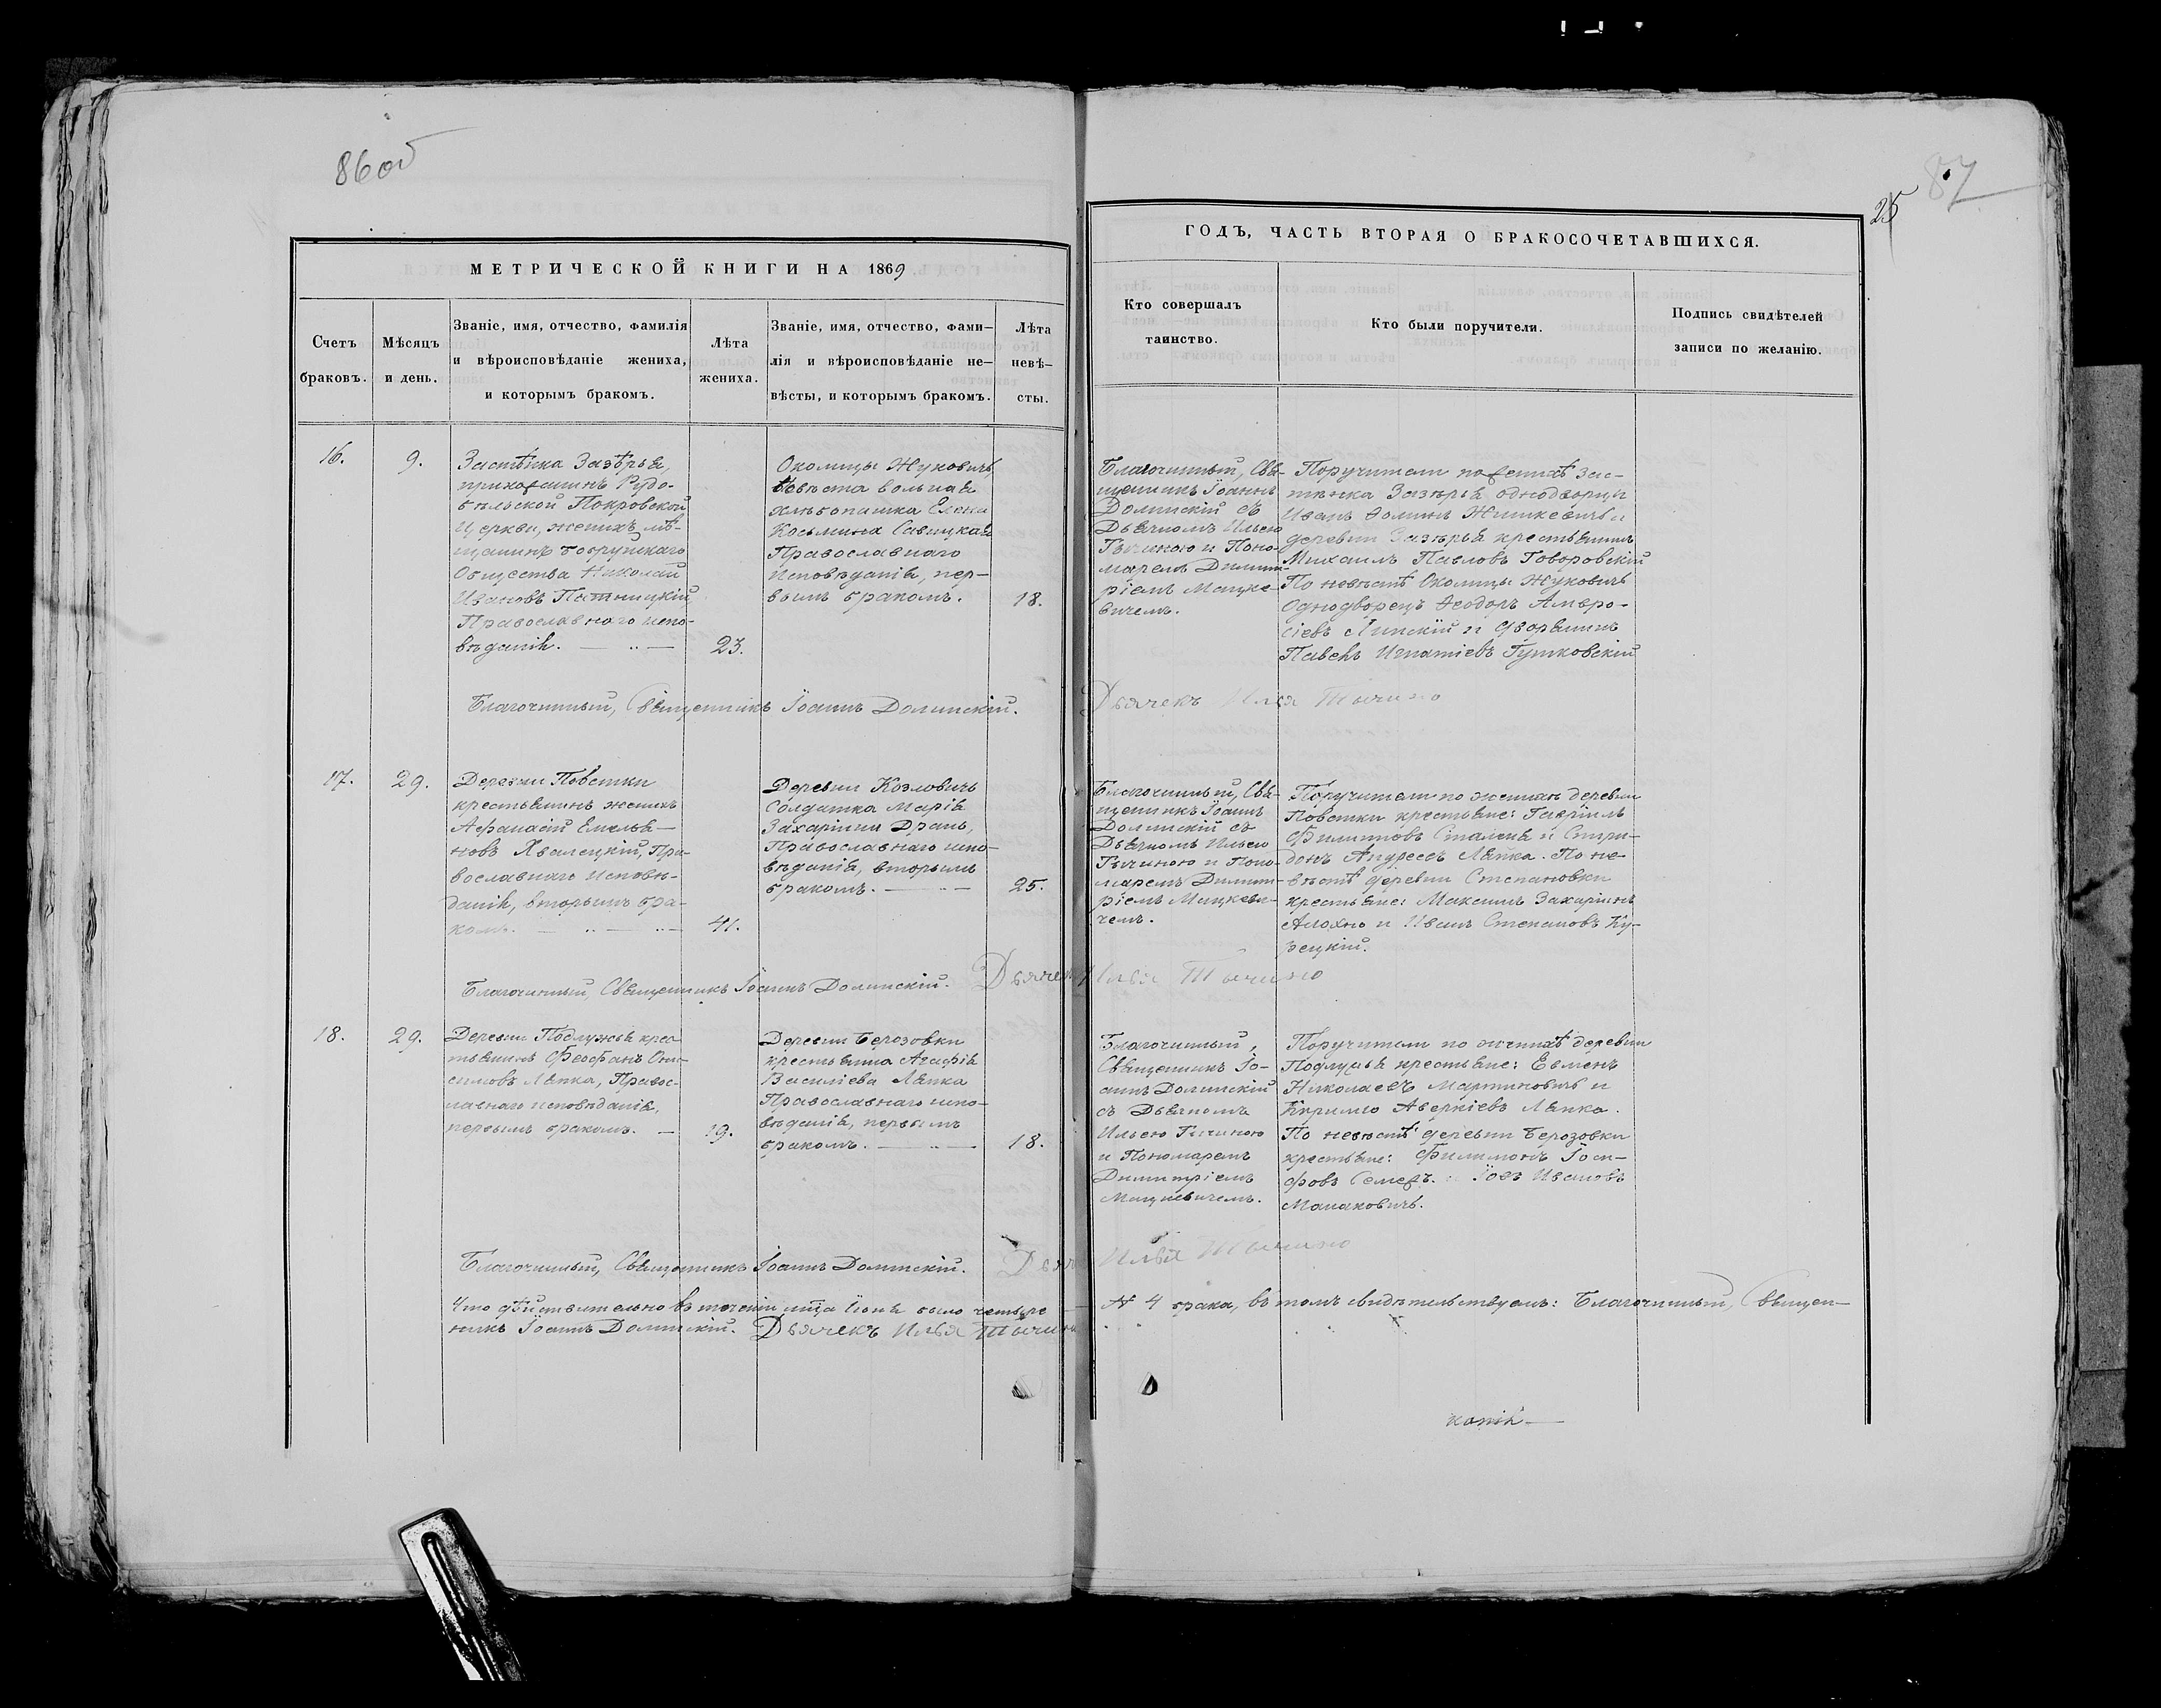 86 об
87
25
МЕТРИЧЕСКОЙ КНИГИ НА 1869
ГОДЪ, ЧАСТЬ ВТОРАЯ О БРАКОСОЧЕТАВШИХСЯ.
Счетъ
браковъ.
Мѣсяцъ
и день.
Званіе, имя, отчество, фамилія
и вѣроисповѣданіе жениха,
и которымъ бракомъ.
Лѣта
жениха.
Званіе, имя, отчество, фами–
лія и вѣроисповѣданіе не–
вѣсты, и которымъ бракомъ.
Лѣта
невѣ–
сты.
Кто совершалъ
таинство.
Кто были поручители.
Подпись свидѣтелей
записи по желанію.
16.
9.
Застѣнка Зазѣрья,
прихожанинъ Рудо-
бѣльской Покровской
Церкви, женихъ мѣ-
щанинъ Бобруйскаго
Общества Николай
Ивановъ Пятницкій
Православнаго испо-
вѣданія.
23.
Околицы Жуковичъ,
невѣста вольная
хлѣбопашка Елена
Косьмина Савицкая
Православнаго
Исповѣданія, пер-
вымъ бракомъ.
18.
Благочинный, Свя-
щенникъ Іоаннъ
Долинскій съ
Дьячкомъ Ильею
Тычиною и Поно-
маремъ Димит-
ріемъ Мацке-
вичемъ.
Поручители по женихѣ Зас-
тѣнка Зазѣрья однодворцы
Иванъ Ѳоминъ Жишкевичъ и
деревни Зазѣрья крестьянинъ
Михаилъ Павловъ Говоровскій
По невѣстѣ Околицы Жуковичъ
Однодворецъ Ѳеодоръ Амвро-
сіевъ Липскій и дворянинъ
Павелъ Игнатіевъ Гутковскій
Благочинный, Священникъ Іоаннъ Долинскій. Дьячекъ Илья Тычино
17.
29.
Деревни Повстки
крестьянинъ женихъ
Афанасій Емелья-
новъ Хвалецкій, Пра-
вославнаго Исповѣ-
данія, вторымъ бра-
комъ.
41.
Деревни Козловичъ
Солдатка Марія
Захаріина Драпъ,
Православнаго испо-
вѣданія, вторымъ
бракомъ.
25.
Благочинный, Свя-
щенникъ Іоаннъ
Долинскій съ
Дьячкомъ Ильею
Тычиною и Поно-
маремъ Димит-
ріемъ Мацкеви-
чемъ.
Поручители по женихѣ деревни
Повстки крестьяне: Гавріилъ
Филиповъ и Спири-
донъ Андреевъ Ляпка. По не-
вѣстѣ деревни Степановки
крестьяне: Максимъ Захаріинъ
Алохно и Иванъ Степановъ Ку-
зецкій.
Благочинный, Священникъ Іоаннъ Долинскій. Дьячекъ Илья Тычино
18.
29.
Деревни Подлужья крес-
тьянинъ Феофанъ Они-
симовъ Ляпка, Правос-
лавнаго исповѣданія,
первымъ бракомъ.
19.
Деревни Березовки
крестьянка Агафія
Василіева Ляпка
Православнаго испо-
вѣданія, первымъ
бракомъ.
18.
Благочинный,
Священникъ Іо-
аннъ Долинскій
съ Дьячкомъ
Ильею Тычиною
и Пономаремъ
Димитріемъ
Мацкевичемъ.
Поручители по женихѣ деревни
Подлужья крестьяне: Евменъ
Николаевъ Мартиновичъ и
Кирилло Аверкіевъ Ляпка.
По невѣстѣ деревни Березовки
крестьяне: Филимонъ Іоси-
фовъ и Іовъ Ивановъ
Малаковичъ.
Благочинный, Священникъ Іоаннъ Долинскій. Дьячекъ Илья Тычино
Что дѣйствительно въ теченіи мца Іюня было четыре № 4 брака, въ томъ свидѣтельствуемъ: Благочинный, Священ-
никъ Іоаннъ Долинскій. Дьячекъ Илья Тычино
копія